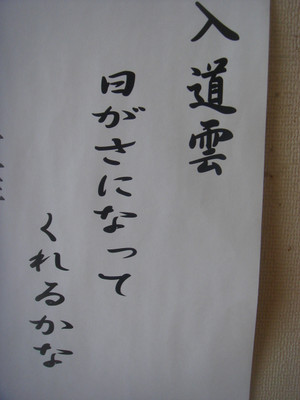 入道雲
日がさになって
くれるかな